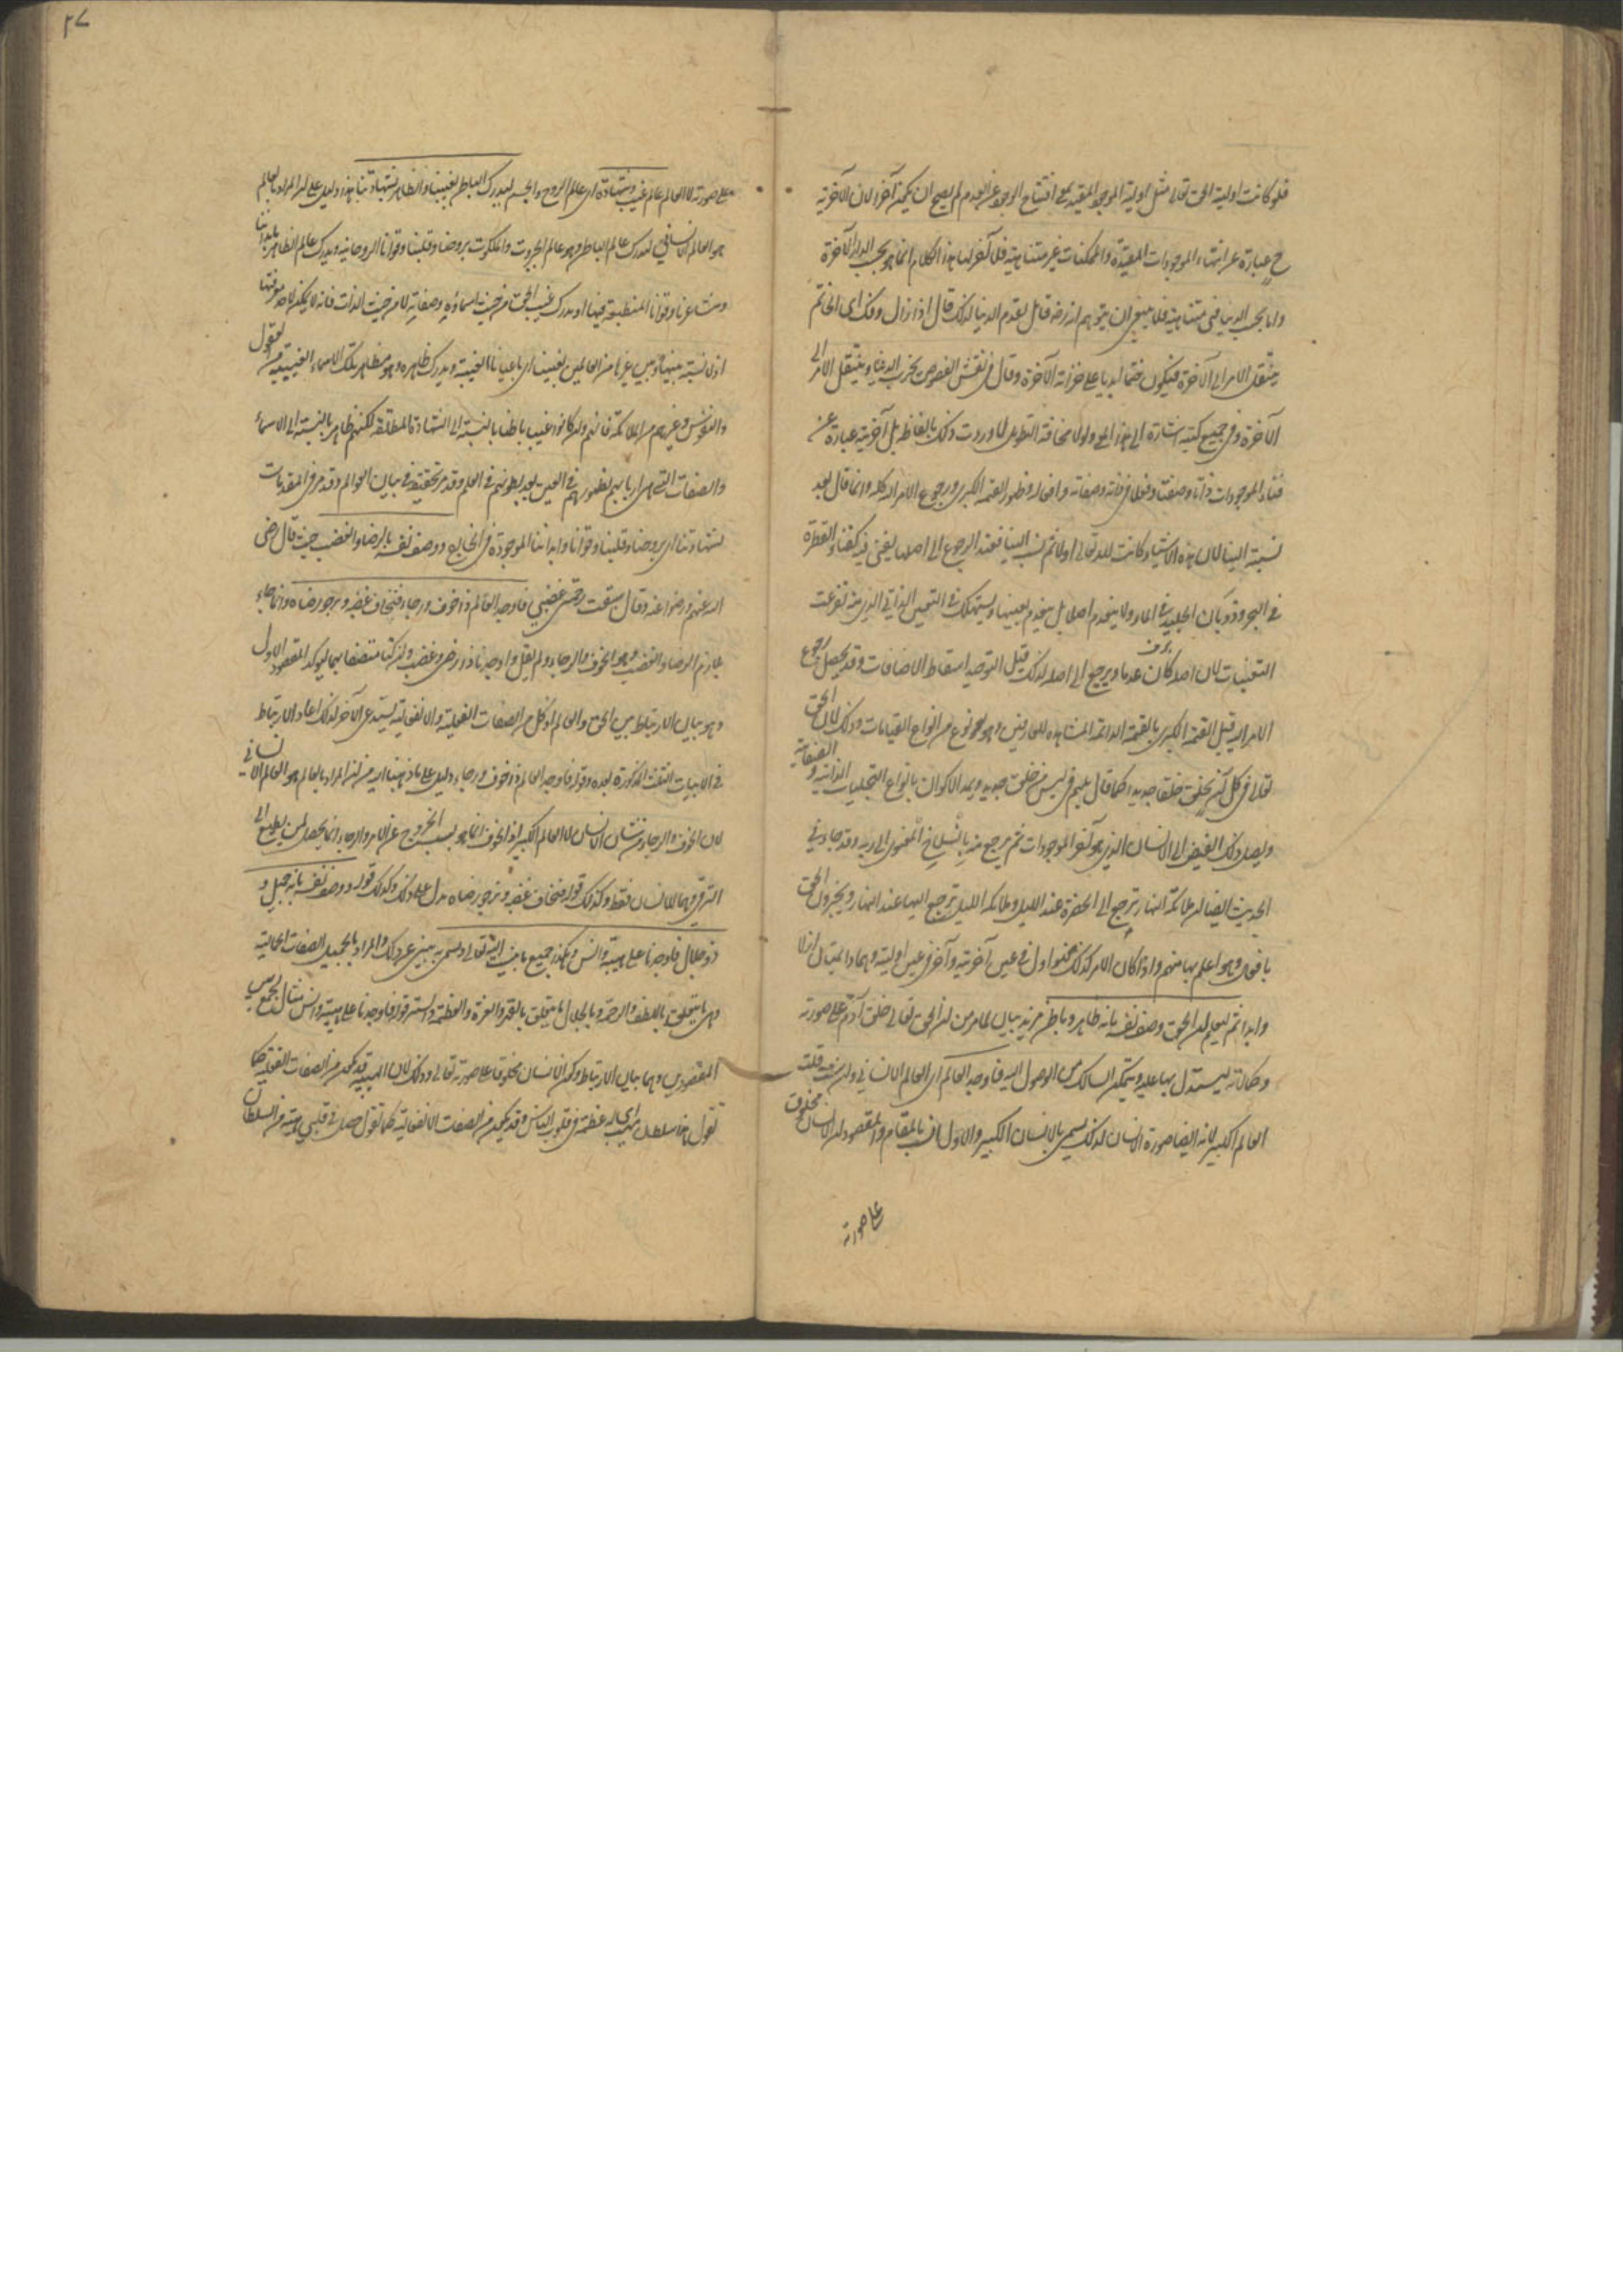 فلو كانت اولية الحق تعالى مثل اولية الموجود المقيد بمعنى افتتاح الوجود عن العدم لم يصح ان يكون آخرا لان الآخرية
ح عبارة عن انتهاء الموجودات المقيدة والممكنات غير متناهية فلا آخر لها هذا الكلام انما هو بحسب الدار الآخرة
واما بحسب الدنيا فهي متناهية فلا ينبغي ان يتوهم انه رضه قائل بقدم الدنيا لذلك قال اذا زال وفك اى الخاتم
ينتقل الامر الى الآخرة فيكون ختما ابديا على خزانة الآخرة وقال في نقش الفصوص بخرب الدنيا وينتقل الامر الى
الآخرة وفي جميع كتبه اشارة الى هذا المعنى ولولا مخافة التطويل لاوردت ذلك بالفاظه بل آخريته عبارة عن
فناء الموجودات ذاتا وصفة وفعلا في ذاته وصفاته وافعاله بظهور القيمة الكبرى ورجوع الامر اليه كله وانما قال بعد
نسبته الينا لان هذه الاشياء كانت لله تعالى اولا ثم نسب الينا فعند الرجوع الى اصلها يفنى فيه كفناء القطرة
في البحر وذوبان الجليد في الماء ولا ينعدم اصلا بل ينعدم تعينها ويستهلك في التعين الذاتي الذي منه تفرعت
التعينات لان اصله كان عدما ويرجع الى اصله لذلك قيل التوحيد اسقاط الاضافات وقد يحصل رجوع
الامر اليه قبل القيمة الكبرى بالقيمة الدائمة المشاهدة للعارفين وهو نوع من انواع القيامات وذلك لان الحق
تعالى في كل آن يخلق خلقا جديدا كما قال بل هم في لبس من خلق جديد ويمد الاكوان بانواع التجليات الذاتية والصفاتية
ويصل ذلك الفيض الى الانسان الذي هو آخر الموجودات ثم يرجع منه بالانسلاخ المعنوى الى ربه وقد جاء في
الحديث ايضا ان ملائكة النهار ترجع الى الحضرة عند الليل وملائكة الليل ترجع اليها عند النهار ويخبرون الحق
بافعال وهو اعلم بها منهم واذا كان الامر كذلك فهو اول في عين آخريته وآخر في عين اوليته وهما دائمتان ازلا
وابدا ثم ليعلم ان الحق وصف نفسه بانه ظاهر وباطن مزيد بيان لما مر من ان الحق تعالى خلق آدم على صورته
وكمالاته ليستدل بها عليه ويتمكن السالك من الوصول اليه فاوجد العالم اى العالم الانساني وان شئت قلت
العالم الكبير لانه ايضا صورة الانسان لذلك يسمى بالانسان الكبير والاول انسب بالمقام والمقصود ان الانسان مخلوق
على صورته
٢٧
على صورته لا العالم عالم غيب وشهادة اى عالم الروح والجسم ليدرك الباطن بغيبنا والظاهر بشهادتنا هذا دليل على ان المراد بالعالم
هو العالم الانساني لندرك عالم الباطن وهو عالم الجبروت والملكوت بروحنا وقلبنا وقوانا الروحانية وندرك عالم الظاهر بابداننا
ومشاعرنا وقوانا المنطبعة فيها او ندرك غيب الحق من حيث اسماؤه وصفاته لا من حيث الذات فانه لا يمكن لاحد معرفتها
اذ لا نسبة بينها وبين غيرها من العالمين بغيبنا اى باعياننا الغيبية وندرك ظاهره وهو مظاهر تلك الاسماء الغيبية من العقول
والنفوس وغيرهم من الملائكة فانهم وان كانوا غيبا باطنا بالنسبة الى الشهادة المطلقة لكنهم ظاهر بالنسبة الى الاسماء
والصفات التي هي اربابهم لظهورهم في العين بعد بطونهم في العلم وقد مر تحقيقه في بيان العوالم وقد مر في المقدمات
بشهادتنا اى بروحنا وقلبنا وقوانا وابداننا الموجودة في الخارج ووصف نفسه بالرضا والغضب حيث قال رضى
الله عنهم ورضوا عنه وقال سبقت رحمتي غضبي فاوجد العالم ذا خوف ورجاء فنخاف غضبه ونرجو رضاه وانما جاء
بلازم الرضا والغضب وهو الخوف والرجاء ولم يقل واوجدنا ذا رضى وغضب وان كنا متصفا بهما ليؤكد المقصود الاول
وهو بيان الارتباط بين الحق والعالم اذ كل من الصفات الفعلية والانفعالية يستدعى الآخر لذلك اعاد الارتباط
في الابيات الثلث المذكورة بعده وقوله فاوجد العالم ذا خوف ورجاء دليل على ما ذهبنا اليه من ان المراد بالعالم هو العالم الانساني
لان الخوف والرجاء من شان الانسان لا العالم الكبير اذ الخوف انما هو بسبب الخروج عن الامر والرجاء انما يحصل لمن يطمع الى
الترقي وهما للانسان فقط وكذلك قوله فنخاف غضبه ونرجو رضاه يدل على ذلك وكذلك قوله ووصف نفسه بانه جميل و
ذو جلال فاوجدنا على هيبة وانس وهكذا جميع ما ينسب اليه تعالى ويسمى به يبنى عن ذلك والمراد بالجميل الصفات الجمالية
وهي ما يتعلق باللطف والرحمة وبالجلال ما يتعلق بالقهر والعزة والعظمة والستر وقوله فاوجدنا على هيبة وانس مثال يجمع بين
المقصودين وهما بيان الارتباط وكون الانسان مخلوقا على صورته تعالى وذلك لان الهيبة قد تكون من الصفات الفعلية كما
تقول هذا سلطان مهيب اى له عظمة في قلوب الناس وقد يكون من الصفات الانفعالية كما تقول حصل في قلبي هيبة من السلطان